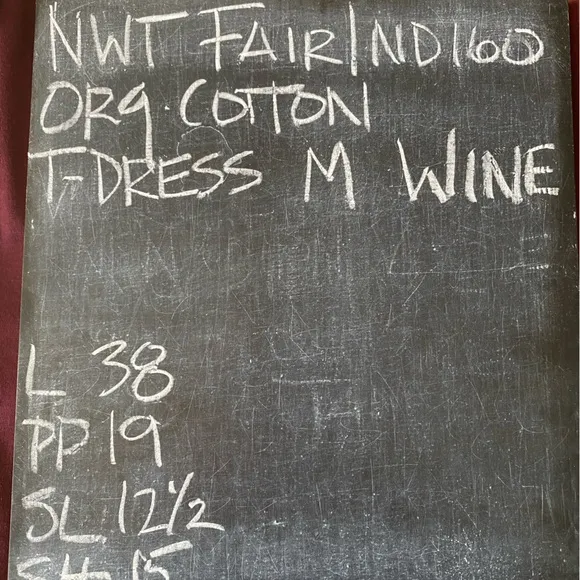 NWT FAIR INDIGO
ORG. COTTON
T-DRESS M WINE
L 38
PP 19
SL 12½
SH 15